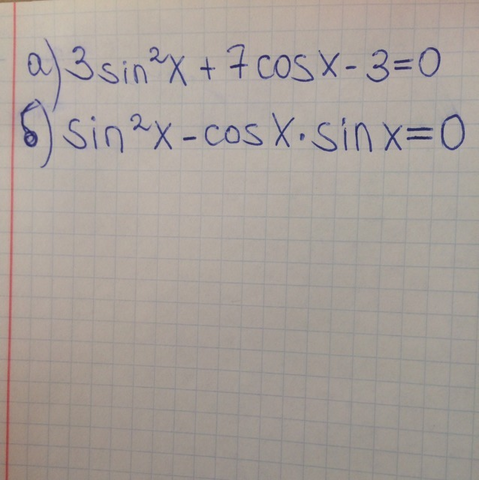 а) 3sin²x + 7cosx - 3 = 0
б) sin²x - cosx · sinx = 0